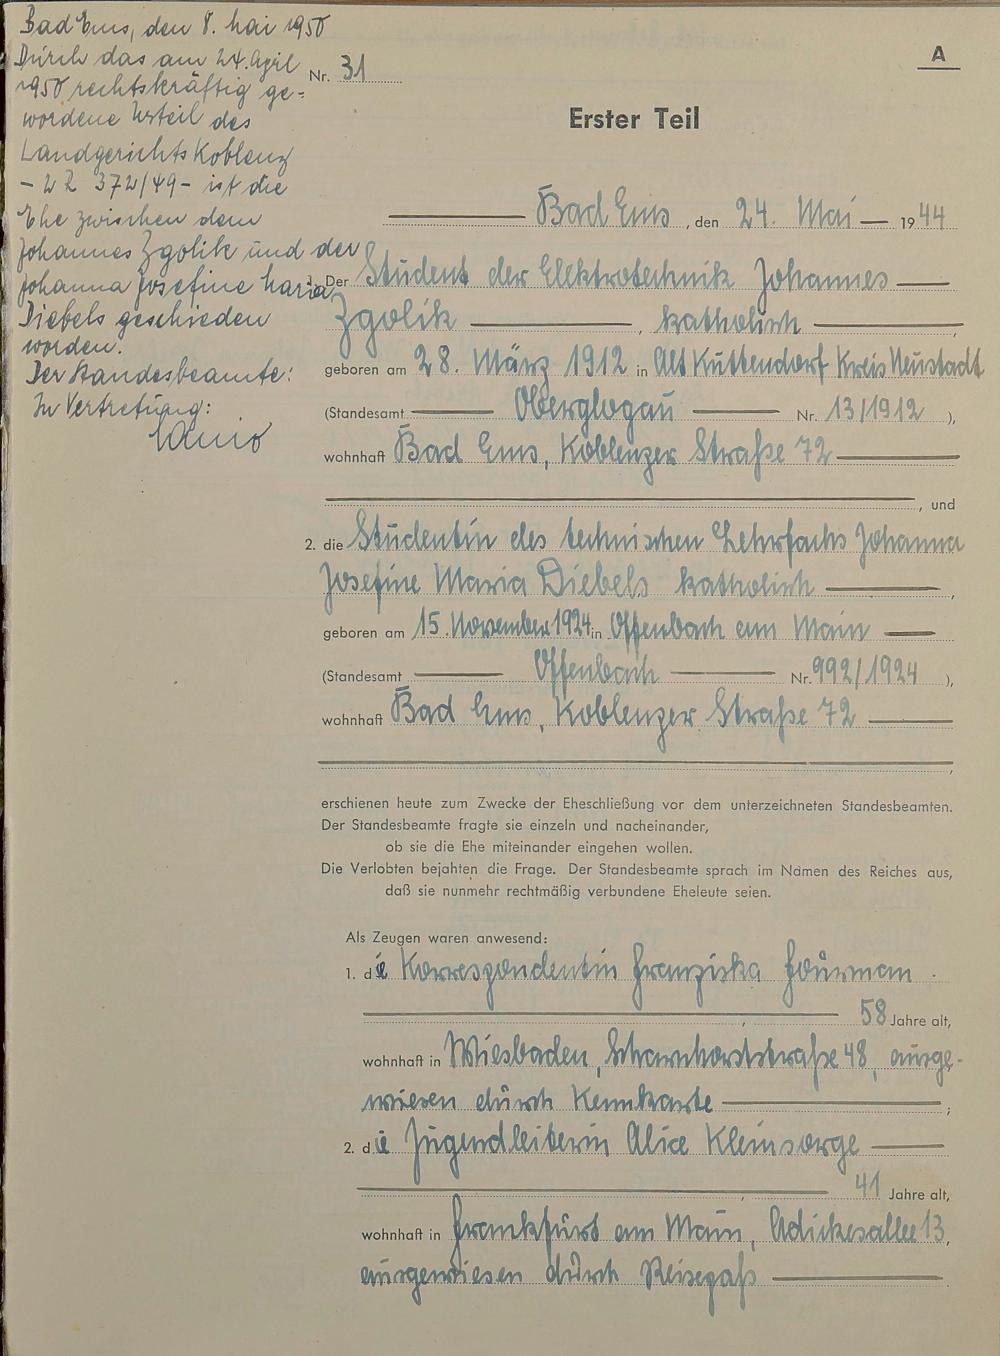 Bad Ems, den 8. Mai 1950
Durch das am 24. April
1950 rechtskräftig ge-
wordene Urteil des
Landgerichts Koblenz
- 2 R 372/49 - ist die
Ehe zwischen dem
Johannes Zgolik und der
Johanna Josefine Maria
Diebels geschieden
worden.
Der Standesbeamte:
In Vertretung:
A
Nr. 31
Erster Teil
Bad Ems, den 24. Mai 1944
1. Der Student der Elektrotechnik Johannes
Zgolik, katholisch,
geboren am 28. März 1912 in Alt Kuttendorf Kreis Neustadt
(Standesamt Oberglogau Nr. 13/1912),
wohnhaft Bad Ems, Koblenzer Straße 72
, und
2. die Studentin des technischen Lehrfachs Johanna
Josefine Maria Diebels katholisch,
geboren am 15. November 1924 in Offenbach am Main
(Standesamt Offenbach Nr. 992/1924),
wohnhaft Bad Ems, Koblenzer Straße 72
,
erschienen heute zum Zwecke der Eheschließung vor dem unterzeichneten Standesbeamten.
Der Standesbeamte fragte sie einzeln und nacheinander,
ob sie die Ehe miteinander eingehen wollen.
Die Verlobten bejahten die Frage. Der Standesbeamte sprach im Namen des Reiches aus,
daß sie nunmehr rechtmäßig verbundene Eheleute seien.
Als Zeugen waren anwesend:
1. die Korrespondentin Franziska Fourman
, 58 Jahre alt,
wohnhaft in Wiesbaden, Scharnhorststraße 48, ausge-
wiesen durch Kennkarte;
2. die Jugendleiterin Alice Kleinsorge
, 41 Jahre alt,
wohnhaft in Frankfurt am Main, Adickesallee 13,
ausgewiesen durch Reisepaß